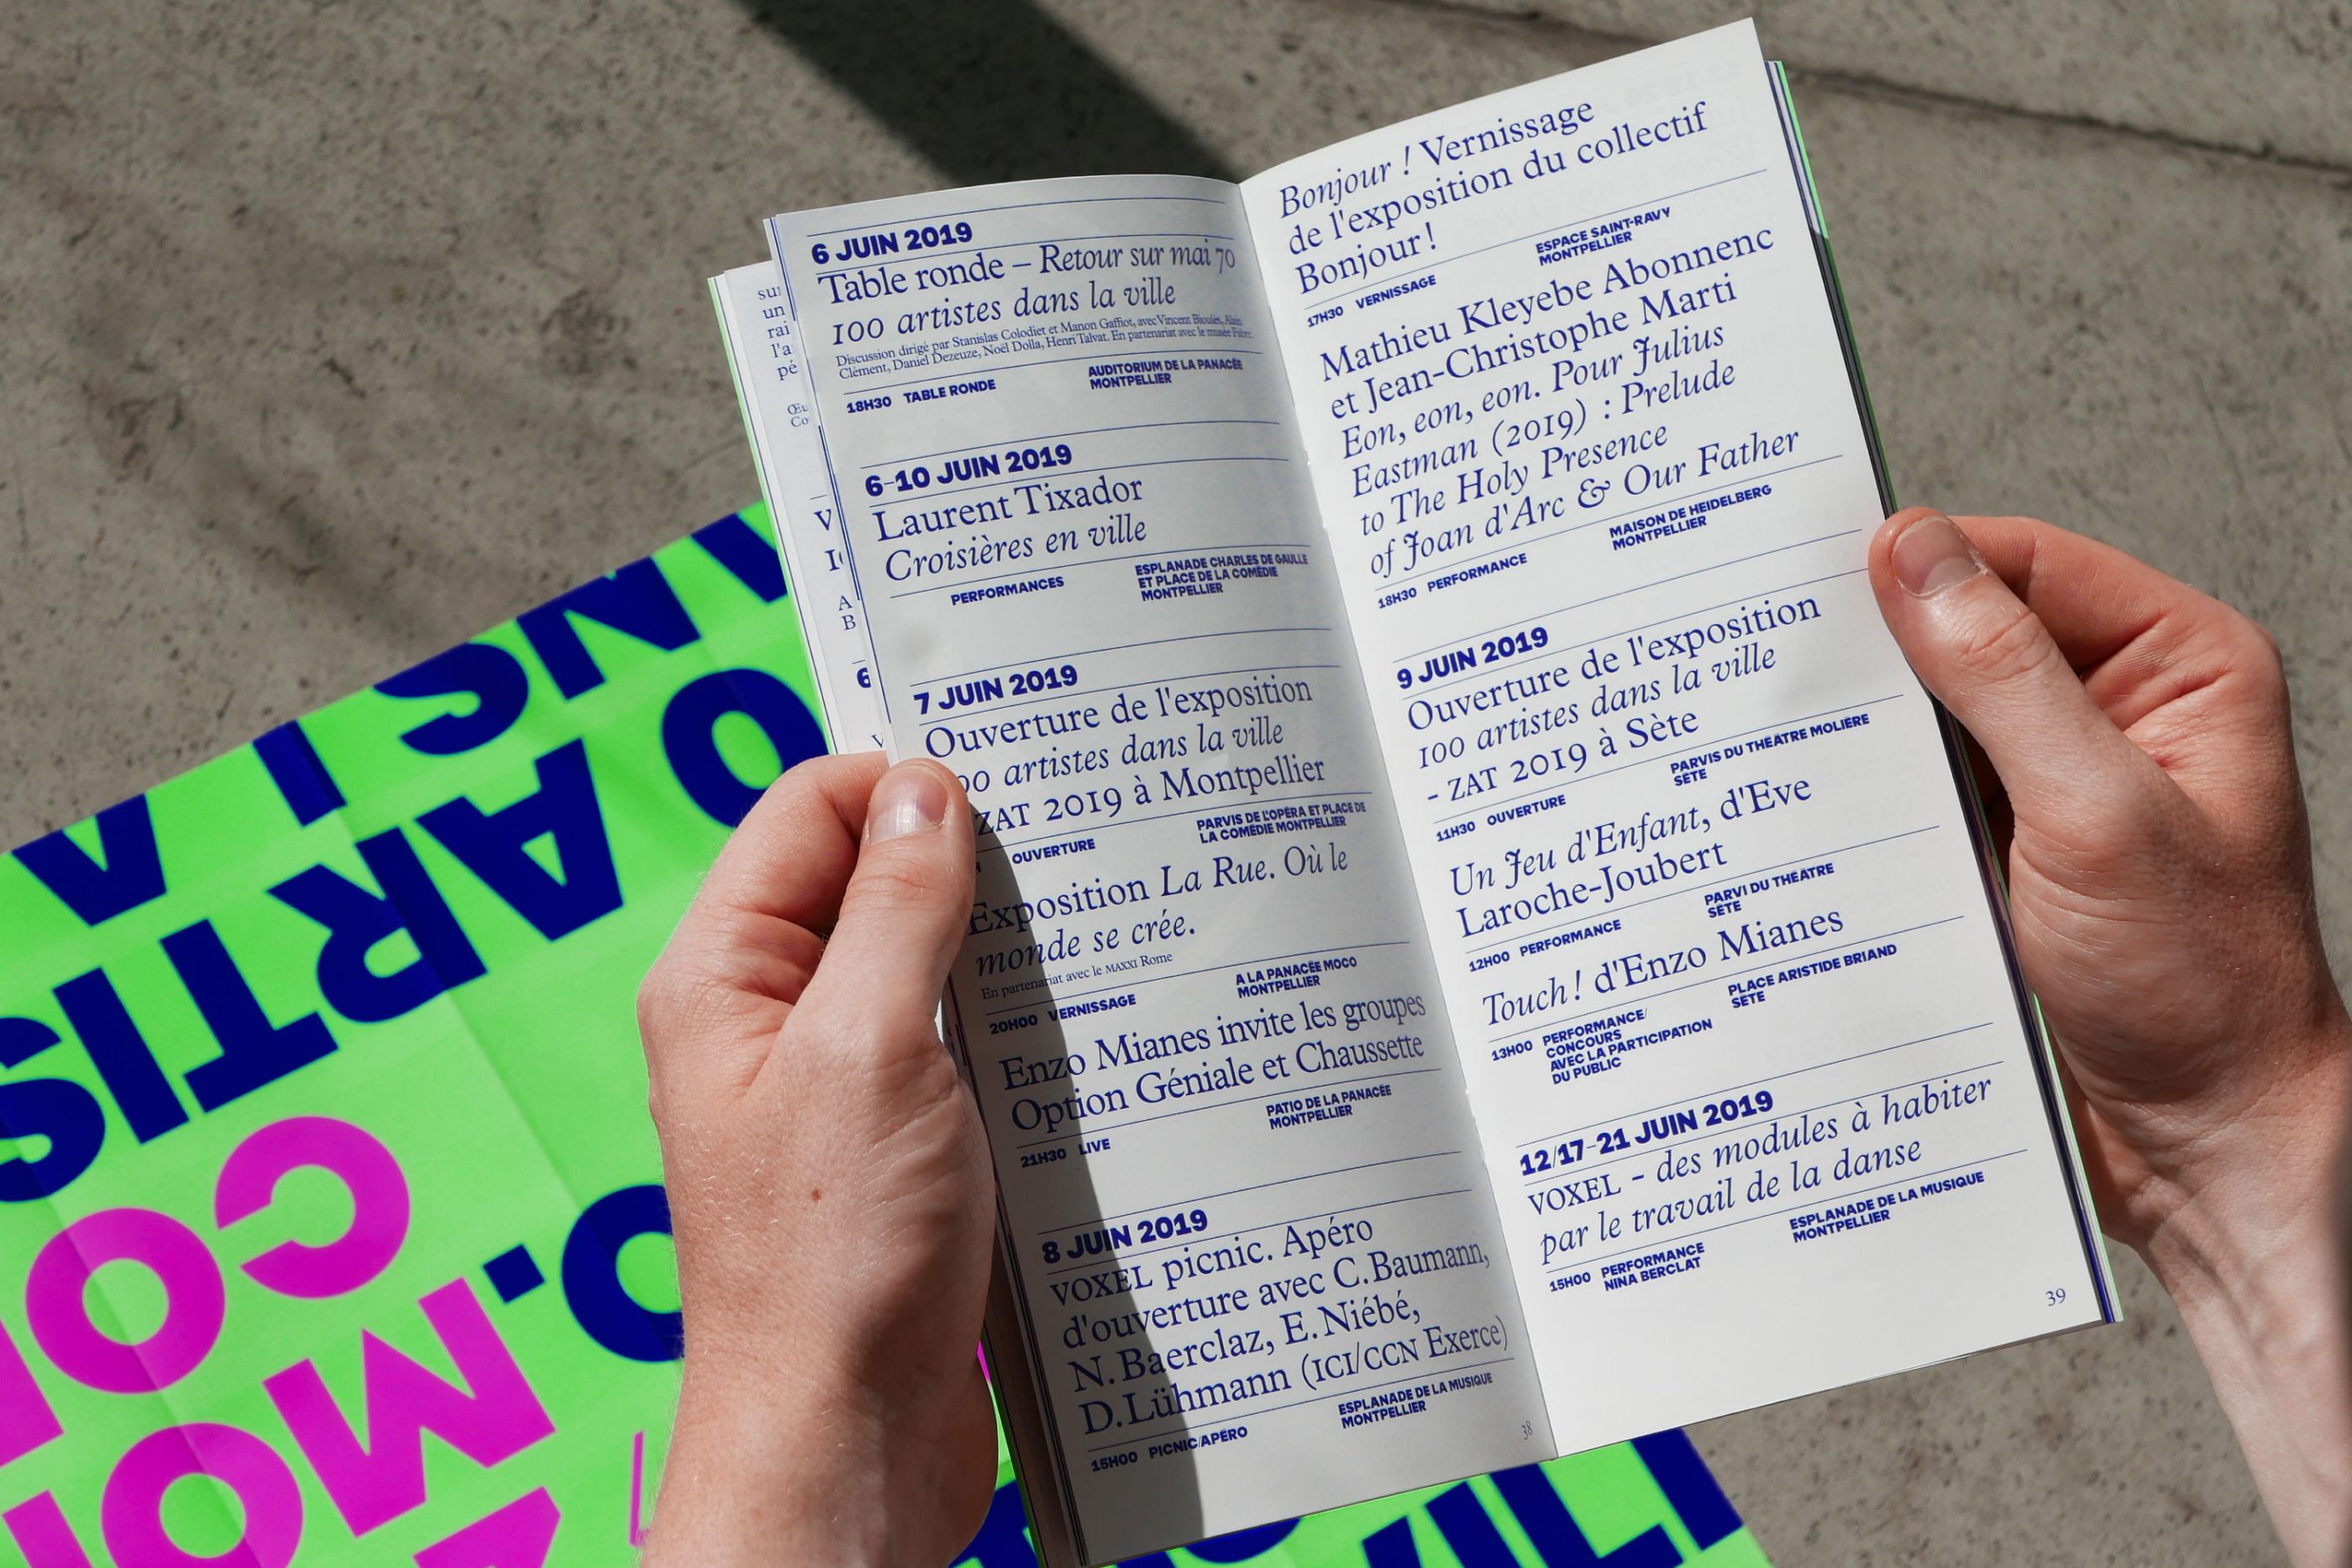 6 JUIN 2019
Table ronde – Retour sur mai 70
100 artistes dans la ville
Discussion dirigé par Stanislas Colodiet et Manon Gaffiot, avec Vincent Bioulès, Alain
Clément, Daniel Dezeuze, Noël Dolla, Henri Talvat. En partenariat avec le musée
18H30 TABLE RONDE
AUDITORIUM DE LA PANACÉE
MONTPELLIER
6-10 JUIN 2019
Laurent Tixador
Croisières en ville
PERFORMANCES
ESPLANADE CHARLES DE GAULLE
ET PLACE DE LA COMÉDIE
MONTPELLIER
7 JUIN 2019
Ouverture de l'exposition
00 artistes dans la ville
ZAT 2019 à Montpellier
OUVERTURE
PARVIS DE L'OPÉRA ET PLACE DE
LA COMÉDIE MONTPELLIER
Exposition La Rue. Où le
monde se crée.
En partenariat avec le MAXXI Rome
20H00 VERNISSAGE
A LA PANACÉE MOCO
MONTPELLIER
Enzo Mianes invite les groupes
Option Géniale et Chaussette
21H30 LIVE
PATIO DE LA PANACÉE
MONTPELLIER
8 JUIN 2019
VOXEL picnic. Apéro
d'ouverture avec C. Baumann,
N. Baerclaz, E. Niébé,
D. Lühmann (ICI/CCN Exerce)
15H00 PICNIC/APÉRO
ESPLANADE DE LA MUSIQUE
MONTPELLIER
38
Bonjour ! Vernissage
de l'exposition du collectif
Bonjour !
17H30 VERNISSAGE
ESPACE SAINT-RAVY
MONTPELLIER
Mathieu Kleyebe Abonnenc
et Jean-Christophe Marti
Eon, eon, eon. Pour Julius
Eastman (2019) : Prelude
to The Holy Presence
of Joan d'Arc & Our Father
18H30 PERFORMANCE
MAISON DE HEIDELBERG
MONTPELLIER
9 JUIN 2019
Ouverture de l'exposition
100 artistes dans la ville
- ZAT 2019 à Sète
11H30 OUVERTURE
PARVIS DU THÉATRE MOLIERE
SÈTE
Un Jeu d'Enfant, d'Eve
Laroche-Joubert
12H00 PERFORMANCE
PARVI DU THÉATRE
SÈTE
Touch ! d'Enzo Mianes
13H00 PERFORMANCE/
CONCOURS
AVEC LA PARTICIPATION
DU PUBLIC
PLACE ARISTIDE BRIAND
SÈTE
12/17-21 JUIN 2019
VOXEL - des modules à habiter
par le travail de la danse
15H00 PERFORMANCE
NINA BERCLAT
ESPLANADE DE LA MUSIQUE
MONTPELLIER
39
ARTIS